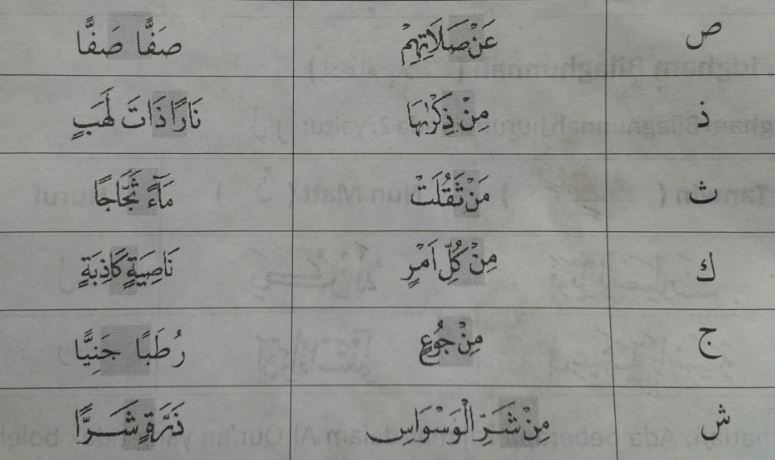 ص عَنْ صَلَاتِهِمْ صَفًّا صَفًّا
ذ مِنْ ذِكْرٰىهَا نَارًا ذَاتَ لَهَبٍ
ث مَنْ ثَقُلَتْ مَآءً ثَجَّاجًا
ك مِنْ كُلِّ اَمْرٍ نَاصِيَةٍ كَاذِبَةٍ
ج مِنْ جُوْعٍ رُطَبًا جَنِيًّا
ش مِنْ شَرِّ الْوَسْوَاسِ ذَرَّةٍ شَرًّا